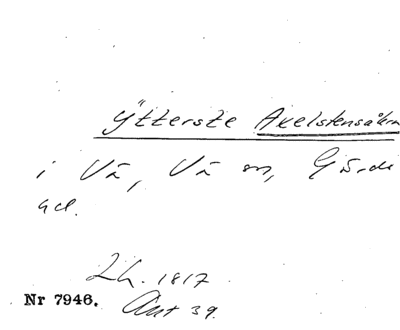 Ytterste Axelstensåkern
i Vä, Vä sn, Gärds
hd.
Lh. 1817
Nr 7946. Akt 39.